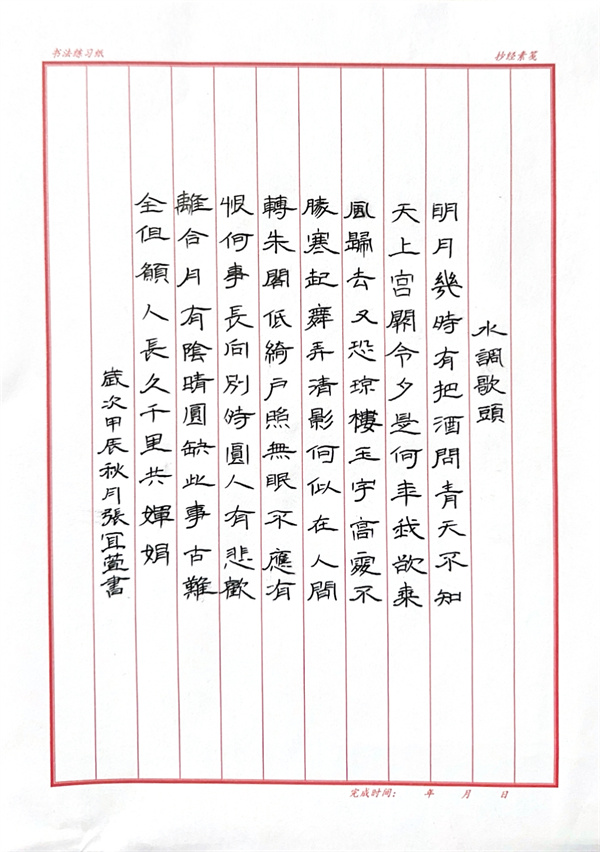 书法练习纸
抄经素笺
水調歌頭
明月幾時有把酒問青天不知
天上宮闕今夕是何年我欲乘
風歸去又恐琼樓玉宇高處不
勝寒起舞弄清影何似在人間
轉朱閣低綺戶照無眠不應有
恨何事長向別時圓人有悲歡
離合月有陰晴圓缺此事古難
全但願人長久千里共嬋娟
歲次甲辰秋月張宜萱書
完成时间： 年 月 日